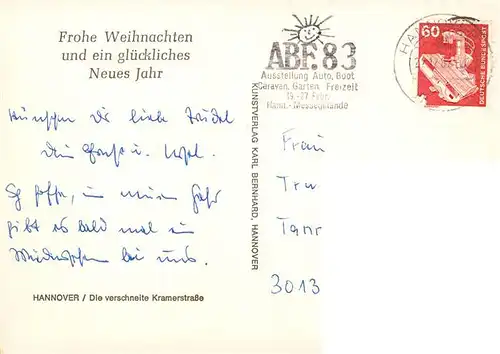 Frohe Weihnachten
und ein glückliches
Neues Jahr
wünschen Dir liebe Trudel
Dein Ernst u.
Ich hoffe, im neuen Jahr
gibt es bald mal ein
Wiedersehen bei uns.
HANNOVER / Die verschneite Kramerstraße
KUNSTVERLAG KARL BERNHARD, HANNOVER
ABF.83
Ausstellung Auto, Boot
Caravan, Garten Freizeit
19.-27. Febr.
Hann.-Messegelände
HANNOVER
60
DEUTSCHE BUNDESPOST
Frau
Tru
Tanr
3013